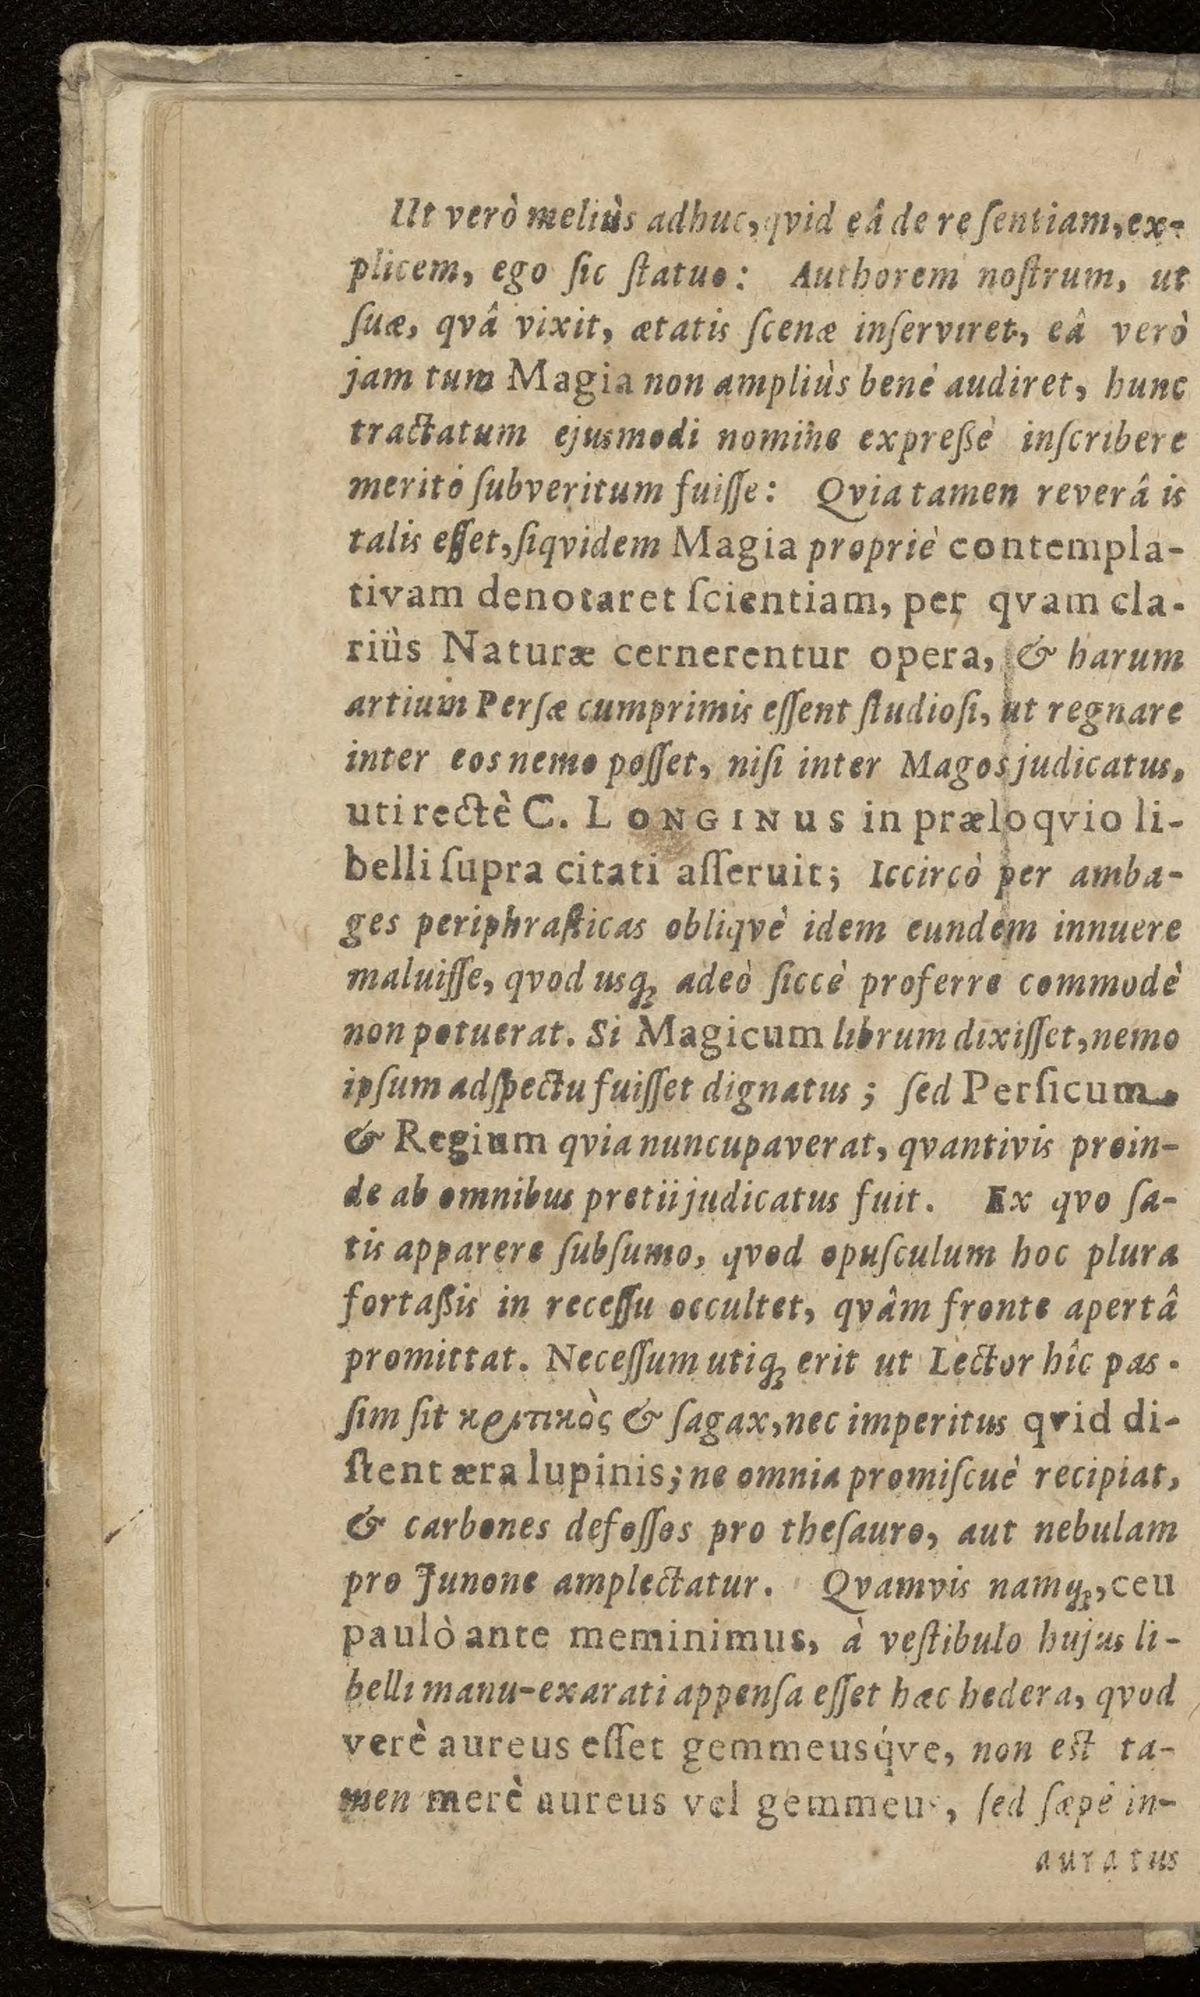 Ut verò meliùs adhuc, qvid eâ de re ſentiam, ex-
plicem, ego ſic ſtatuo: Authorem noſtrum, ut
ſuæ, qvâ vixit, ætatis ſcenæ inſerviret, eâ verò
jam tum Magia non ampliùs benè audiret, hunc
tractatum ejusmodi nomine expreßè inſcribere
meritò ſubveritum fuiſſe: Qvia tamen reverâ is
talis eſſet, ſiqvidem Magia propriè contempla-
tivam denotaret ſcientiam, per qvam cla-
riùs Naturæ cernerentur opera, & harum
artium Perſæ cumprimis eſſent ſtudioſi, ut regnare
inter eos nemo poſſet, niſi inter Magos judicatus,
uti rectè C. LONGINUS in præloqvio li-
belli ſupra citati aſſeruit; Iccircò per amba-
ges periphraſticas obliqvè idem eundem innuere
maluiſſe, qvod usq́; adeò ſiccè proferre commodè
non potuerat. Si Magicum librum dixiſſet, nemo
ipſum adſpectu fuiſſet dignatus; ſed Perſicum
& Regium qvia nuncupaverat, qvantivis proin-
de ab omnibus pretii judicatus fuit. Ex qvo ſa-
tis apparere ſubſumo, qvod opuſculum hoc plura
fortaßis in receſſu occultet, qvâm fronte apertâ
promittat. Neceſſum utiq; erit ut Lector hîc pas-
ſim ſit κριτικὸς & ſagax, nec imperitus qvid di-
ſtent æra lupinis; ne omnia promiſcuè recipiat,
& carbones defoſſos pro theſauro, aut nebulam
pro Junone amplectatur. Qvamvis namq;, ceu
paulò ante meminimus, à veſtibulo hujus li-
belli manu-exarati appenſa eſſet hæc hedera, qvod
verè aureus eſſet gemmeusq́ve, non eſt ta-
men merè aureus vel gemmeus, ſed ſæpè in-
auratus